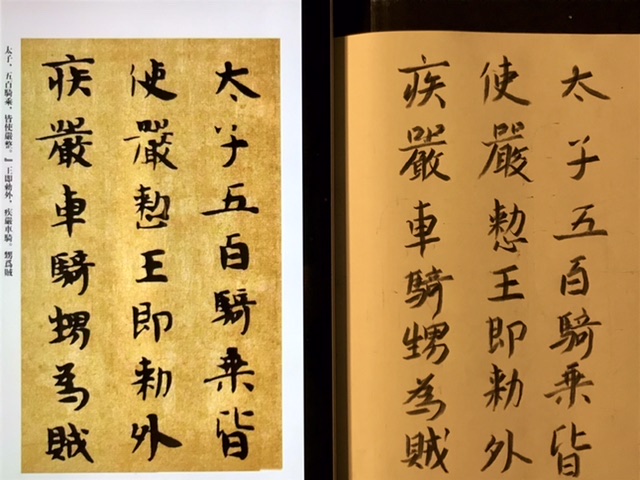 太子五百騎乘皆
使嚴慗王即勑外
疾嚴車騎甥為賊
太子、五百騎乘、皆使嚴整。』王即勅外、疾嚴車騎。甥爲賊
太子五百騎乘皆
使嚴慗王即勑外
疾嚴車騎甥為賊